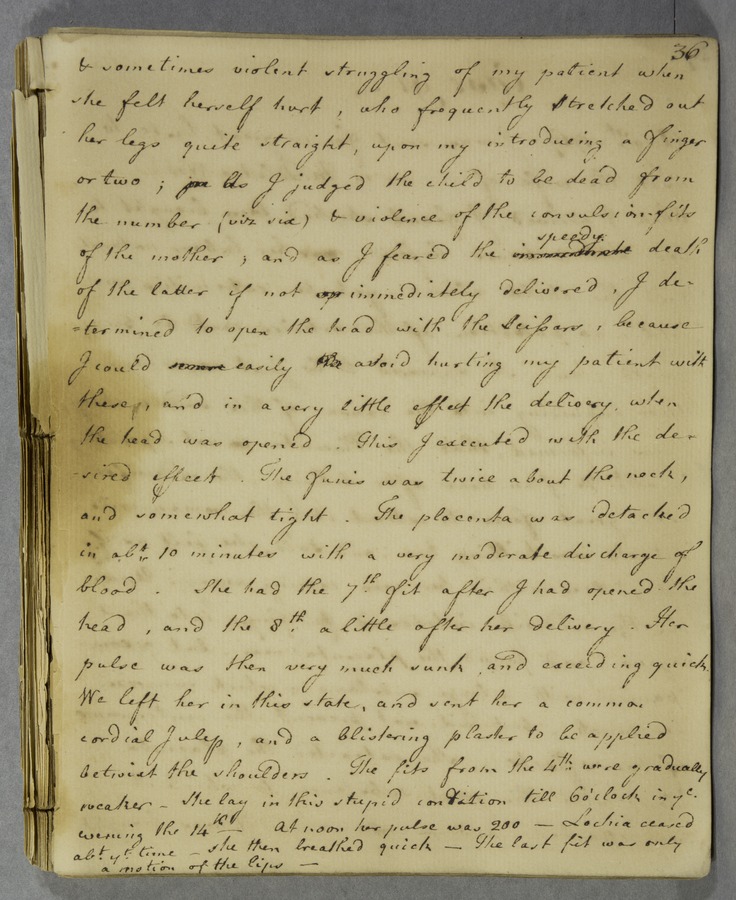 36
& sometimes violent struggling of my patient when
she felt herself hurt, who frequently stretched out
her legs quite straight, upon my introducing a finger
or two; As I judged the child to be dead from
the number (viz six) & violence of the convulsion fits
speedy
of the mother; and as I feared the immediate death
of the latter if not immediately delivered, I de-
=termined to open the head with the Scissars, because
I could easily avoid hurting my patient with
these, and in a very little effect the delivery, when
the head was opened. This I executed with the de-
-sired effect. The funis was twice about the neck,
and somewhat tight. The placenta was detached
in abt. 10 minutes with a very moderate discharge of
blood. She had the 7th. fit after I had opened the
head, and the 8th. a little after her delivery. Her
pulse was then very much sunk, and exceeding quick.
We left her in this state, and sent her a common
cordial Julep, and a blistering plaster to be applied
betwixt the shoulders. The fits from the 4th. were gradually
weaker - She lay in this stupid condition till 6 o'clock in ye.
evening the 14th — At noon her pulse was 200 — Lochia ceased
abt. yt. time - she then breathed quick — The last fit was only
a motion of the lips —